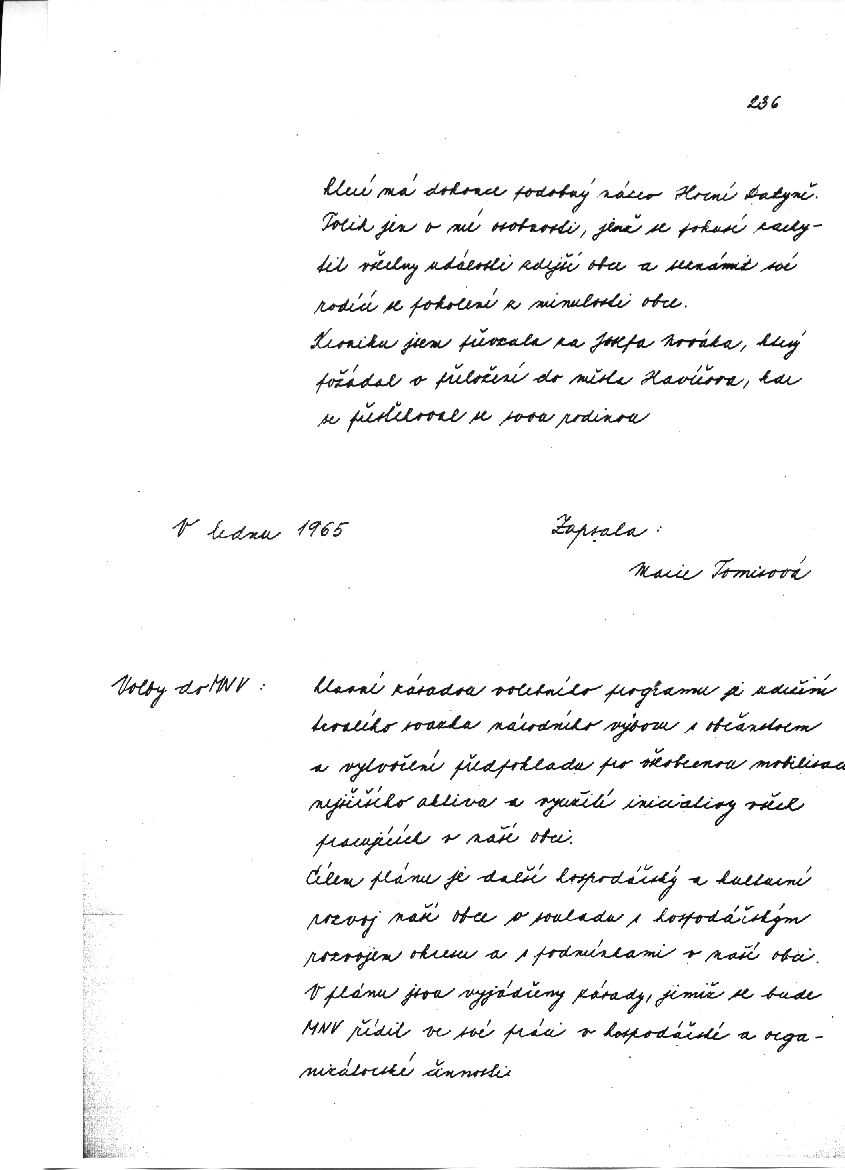 236
které má dokonce podobný název Horní Datyně.
Tolik jen o mé osobnosti, jenž se pokusí zachy-
tit všechny události zdejší obce a seznámit své
rodící se pokolení z minulosti obce.
Kroniku jsem převzala za Josefa Nováka, který
požádal o přeložení do města Havířova, kde
se přestěhoval se svou rodinou
V lednu 1965 Zapsala :
Marie Tomisová
Volby do MNV : hlavní zásadou volebního programu je udržení
trvalého svazku národního výboru s občanstvem
a vytvoření předpokladu pro všeobecnou mobilisaci
nejširšího aktiva a využití iniciativy všech
pracujících v naší obci.
Cílem plánu je další hospodářský a kulturní
rozvoj naší obce v souladu s hospodářským
rozvojem okresu a s podmínkami v naší obci.
V plánu jsou vyjádřeny zásady, jimiž se bude
MNV řídit ve své práci v hospodářské a orga-
nizátorské činnosti.